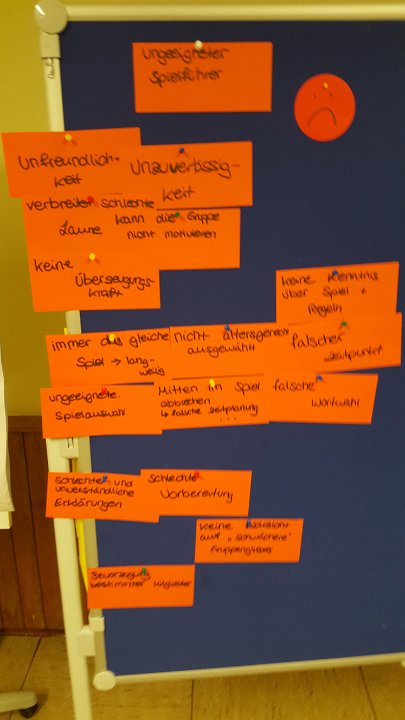 ungeeigneter
Spielführer
Unfreundlich-
keit
Unzuverlässig-
keit
verbreitet schlechte
Laune
kann die Gruppe
nicht motivieren
keine
Überzeugungs-
kraft
keine Kenntnis
über Spiel +
Regeln
immer das gleiche
Spiel → lang-
weilig
nicht altersgerecht
ausgewählt
falscher
Zeitpunkt
ungeeignete
Spielauswahl
Mitten im Spiel
abbrechen
↳ falsche Zeitplanung
...
falsche
Wortwahl
schlechte und
unverständliche
Erklärungen
schlechte
Vorbereitung
keine Rücksicht
auf "schwächere"
Gruppenglieder
Bevorzugung
bestimmter Mitglieder